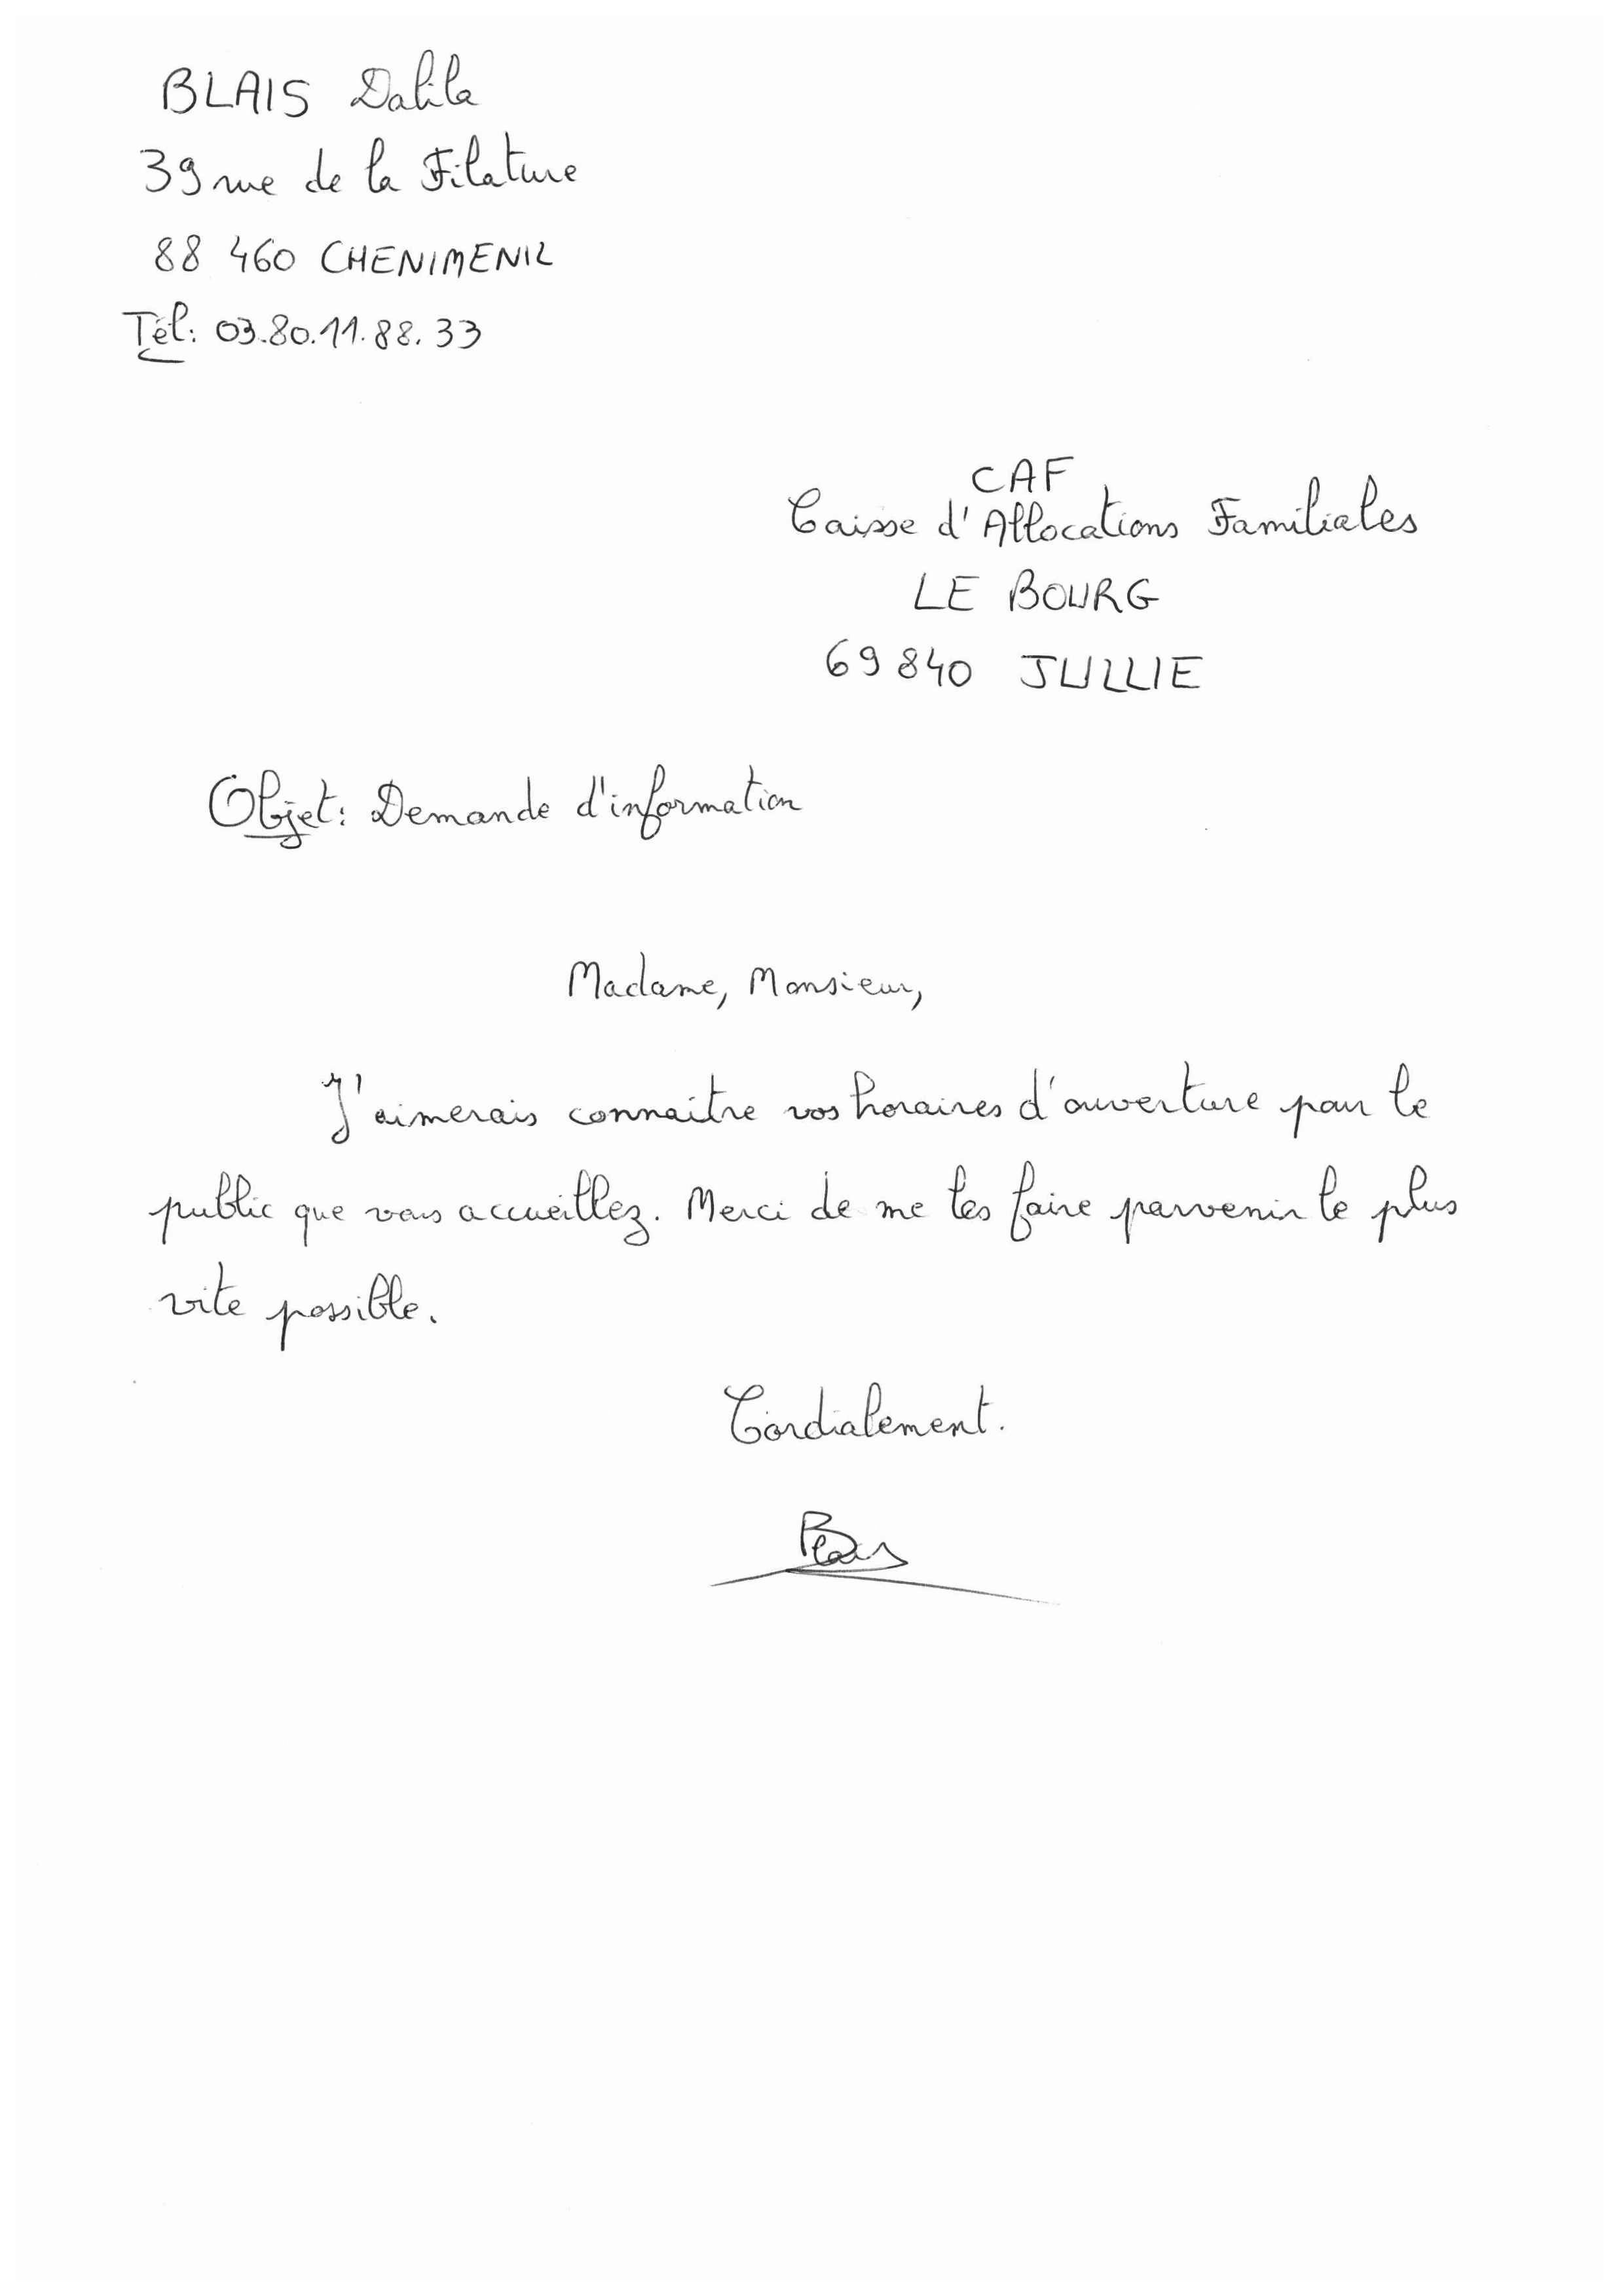 BLAIS Dalila
39 rue de la Filature
88 460 CHENIMENIL
Tél: 03.80.11.88.33
CAF
Caisse d'Allocations Familiales
LE BOURG
69 840 JULLIE
Objet: Demande d'information
Madame, Monsieur,
J'aimerais connaitre vos horaires d'ouverture pour le
public que vous accueillez. Merci de me les faire parvenir le plus
vite possible.
Cordialement.
Blais